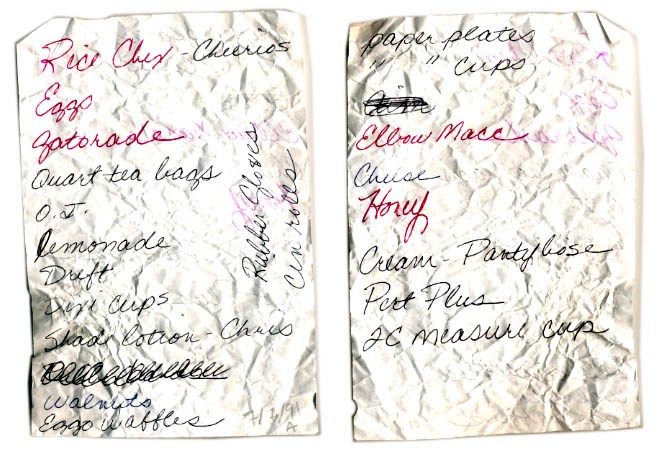 Rice Chex - Cheerios
Eggs
gatorade
Quart tea bags
O.J.
lemonade
Drift
Dixi cups
Shade lotion - Chris
Walnuts
Eggo waffles
Rubber Gloves
Cin rolls
paper plates
" " cups
Elbow Macc
Cheese
Honey
Cream - Pantyhose
Pert Plus
2C measure cup